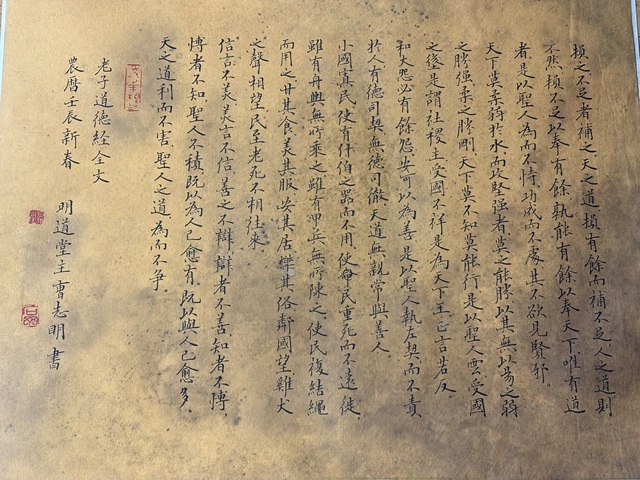 損之不足者補之天之道損有餘而補不足人之道則
不然損不足以奉有餘孰能有餘以奉天下唯有道
者是以聖人為而不恃功成而不處其不欲見賢邪
天下莫柔弱於水而攻堅強者莫之能勝以其無以易之弱
之勝強柔之勝剛天下莫不知莫能行是以聖人雲受國
之垢是謂社稷主受國不祥是為天下王正言若反
和大怨必有餘怨安可以為善是以聖人執左契而不責
於人有德司契無德司徹天道無親常與善人
小國寡民使有什伯之器而不用使每民重死而不遠徙
雖有舟輿無所乘之雖有甲兵無所陳之使民復結繩
而用之甘其食美其服安其居樂其俗鄰國望雞犬
之聲相望民至老死不相往來
信言不美美言不信善之不辯辯者不善知者不博
博者不知聖人不積既以為人己愈有既以與人己愈多
天之道利而不害聖人之道為而不爭
老子道德經全文
農曆壬辰新春
明道堂主曹志明書